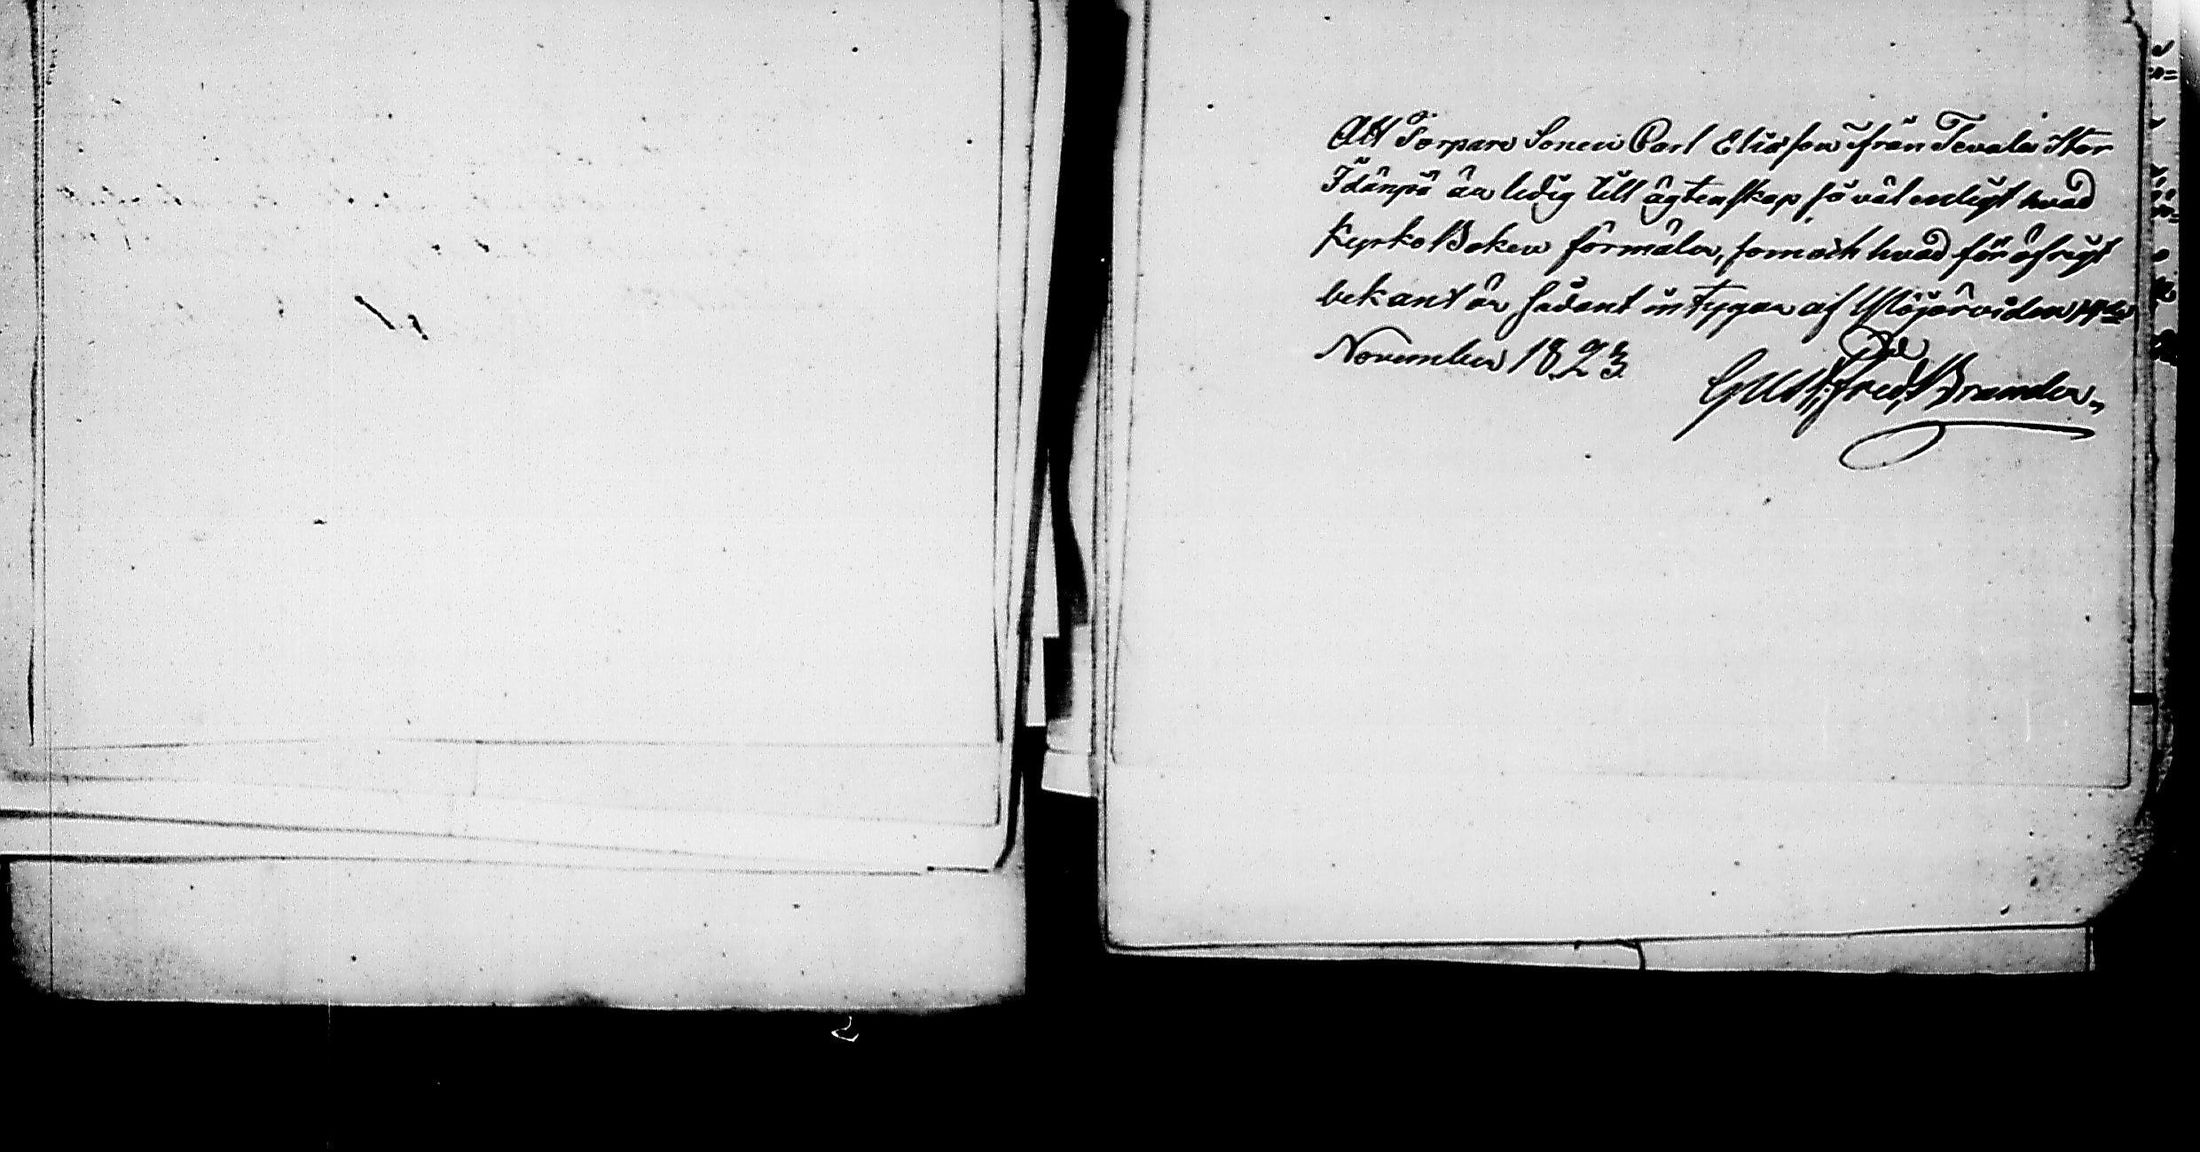 Att Torpare Sonen Carl Eliasson ifrån Tevala Stor
Idänpä är ledig till ägtenskap så väl enligt hvad
Kyrko Boken förmäler, som och hvad för öfrigt
bekant är sådant intygar af Ylöjärvi den
November 1823
Gust: Fred: Brander.
2